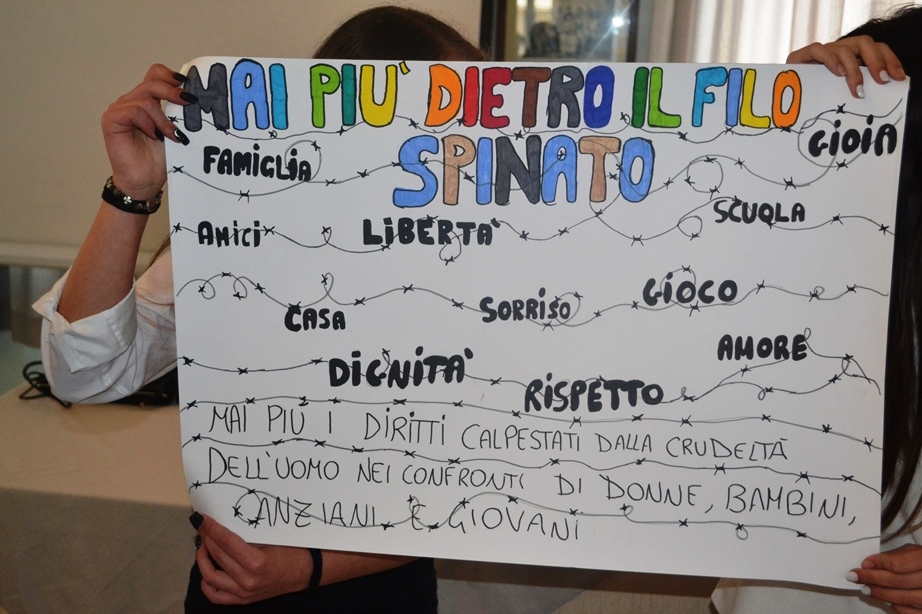 MAI PIU' DIETRO IL FILO
SPINATO
GIOIA
FAMIGLIA
SCUOLA
AMICI
LIBERTA'
GIOCO
CASA
SORRISO
AMORE
DIGNITA'
RISPETTO
MAI PIÙ I DIRITTI CALPESTATI DALLA CRUDELTÀ
DELL'UOMO NEI CONFRONTI DI DONNE, BAMBINI,
ANZIANI E GIOVANI